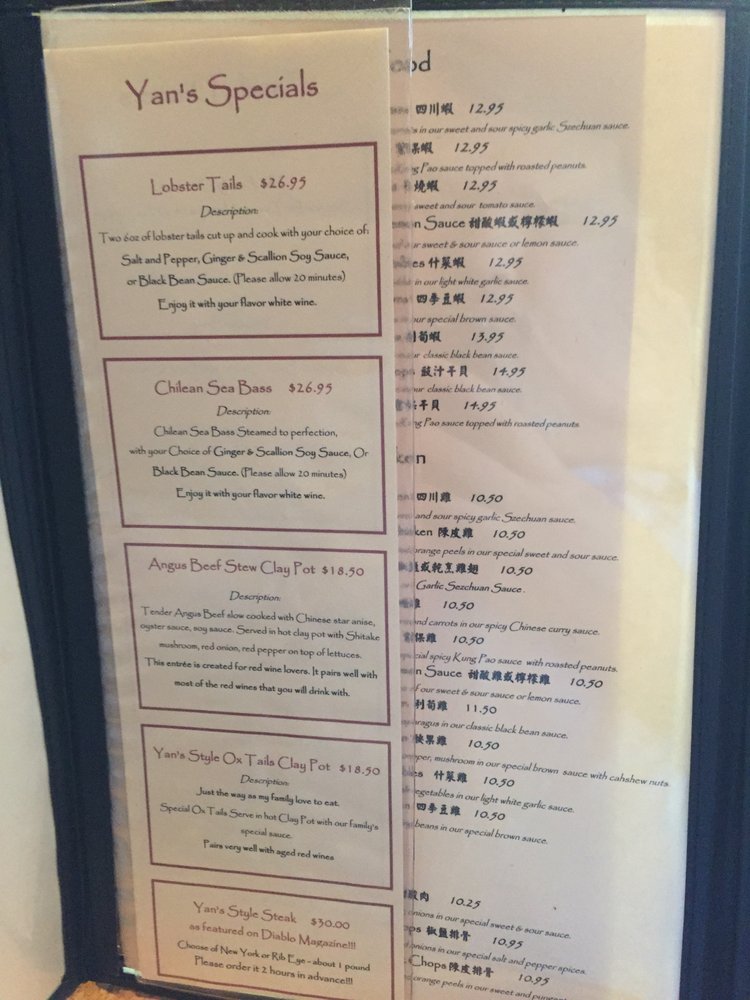 Yan's Specials
Lobster Tails $26.95
Description:
Two 6oz of lobster tails cut up and cook with your choice of:
Salt and Pepper, Ginger & Scallion Soy Sauce,
or Black Bean Sauce. (Please allow 20 minutes)
Enjoy it with your flavor white wine.
Chilean Sea Bass $26.95
Description:
Chilean Sea Bass Steamed to perfection,
with your Choice of Ginger & Scallion Soy Sauce, Or
Black Bean Sauce. (Please allow 20 minutes)
Enjoy it with your flavor white wine.
Angus Beef Stew Clay Pot $18.50
Description:
Tender Angus Beef slow cooked with Chinese star anise,
oyster sauce, soy sauce. Served in hot clay pot with Shitake
mushroom, red onion, red pepper on top of lettuces.
This entrée is created for red wine lovers. It pairs well with
most of the red wines that you will drink with.
Yan's Style Ox Tails Clay Pot $18.50
Description:
Just the way as my family love to eat.
Special Ox Tails Serve in hot Clay Pot with our family's
special sauce.
Pairs very well with aged red wines
Yan's Style Steak $30.00
as featured on Diablo Magazine!!!
Choose of New York or Rib Eye - about 1 pound
Please order it 2 hours in advance!!!
ood
四川蝦 12.95
in our sweet and sour spicy garlic Szechuan sauce.
果蝦 12.95
Pao sauce topped with roasted peanuts.
燒蝦 12.95
sweet and sour tomato sauce.
Sauce 甜酸蝦或檸檬蝦 12.95
our sweet & sour sauce or lemon sauce.
什菜蝦 12.95
in our light white garlic sauce.
四季豆蝦 12.95
our special brown sauce.
筍蝦 13.95
classic black bean sauce.
豉汁干貝 14.95
our classic black bean sauce.
干貝 14.95
Kung Pao sauce topped with roasted peanuts
ken
四川雞 10.50
and sour spicy garlic Szechuan sauce.
陳皮雞 10.50
orange peels in our special sweet and sour sauce.
或乾烹雞翅 10.50
Garlic Sezchuan Sauce.
雞 10.50
and carrots in our spicy Chinese curry sauce.
雞 10.50
spicy Kung Pao sauce with roasted peanuts.
Sauce 甜酸雞或檸檬雞 10.50
of our sweet & sour sauce or lemon sauce.
筍雞 11.50
in our classic black bean sauce.
果雞 10.50
mushroom in our special brown sauce with cahshew nuts
什菜雞 10.50
vegetables in our light white garlic sauce.
四季豆雞 10.50
beans in our special brown sauce.
酸肉 10.25
onions in our special sweet & sour sauce.
椒鹽排骨 10.95
onions in our special salt and pepper spices.
Chops 陳皮排骨 10.95
orange peels in our sweet and